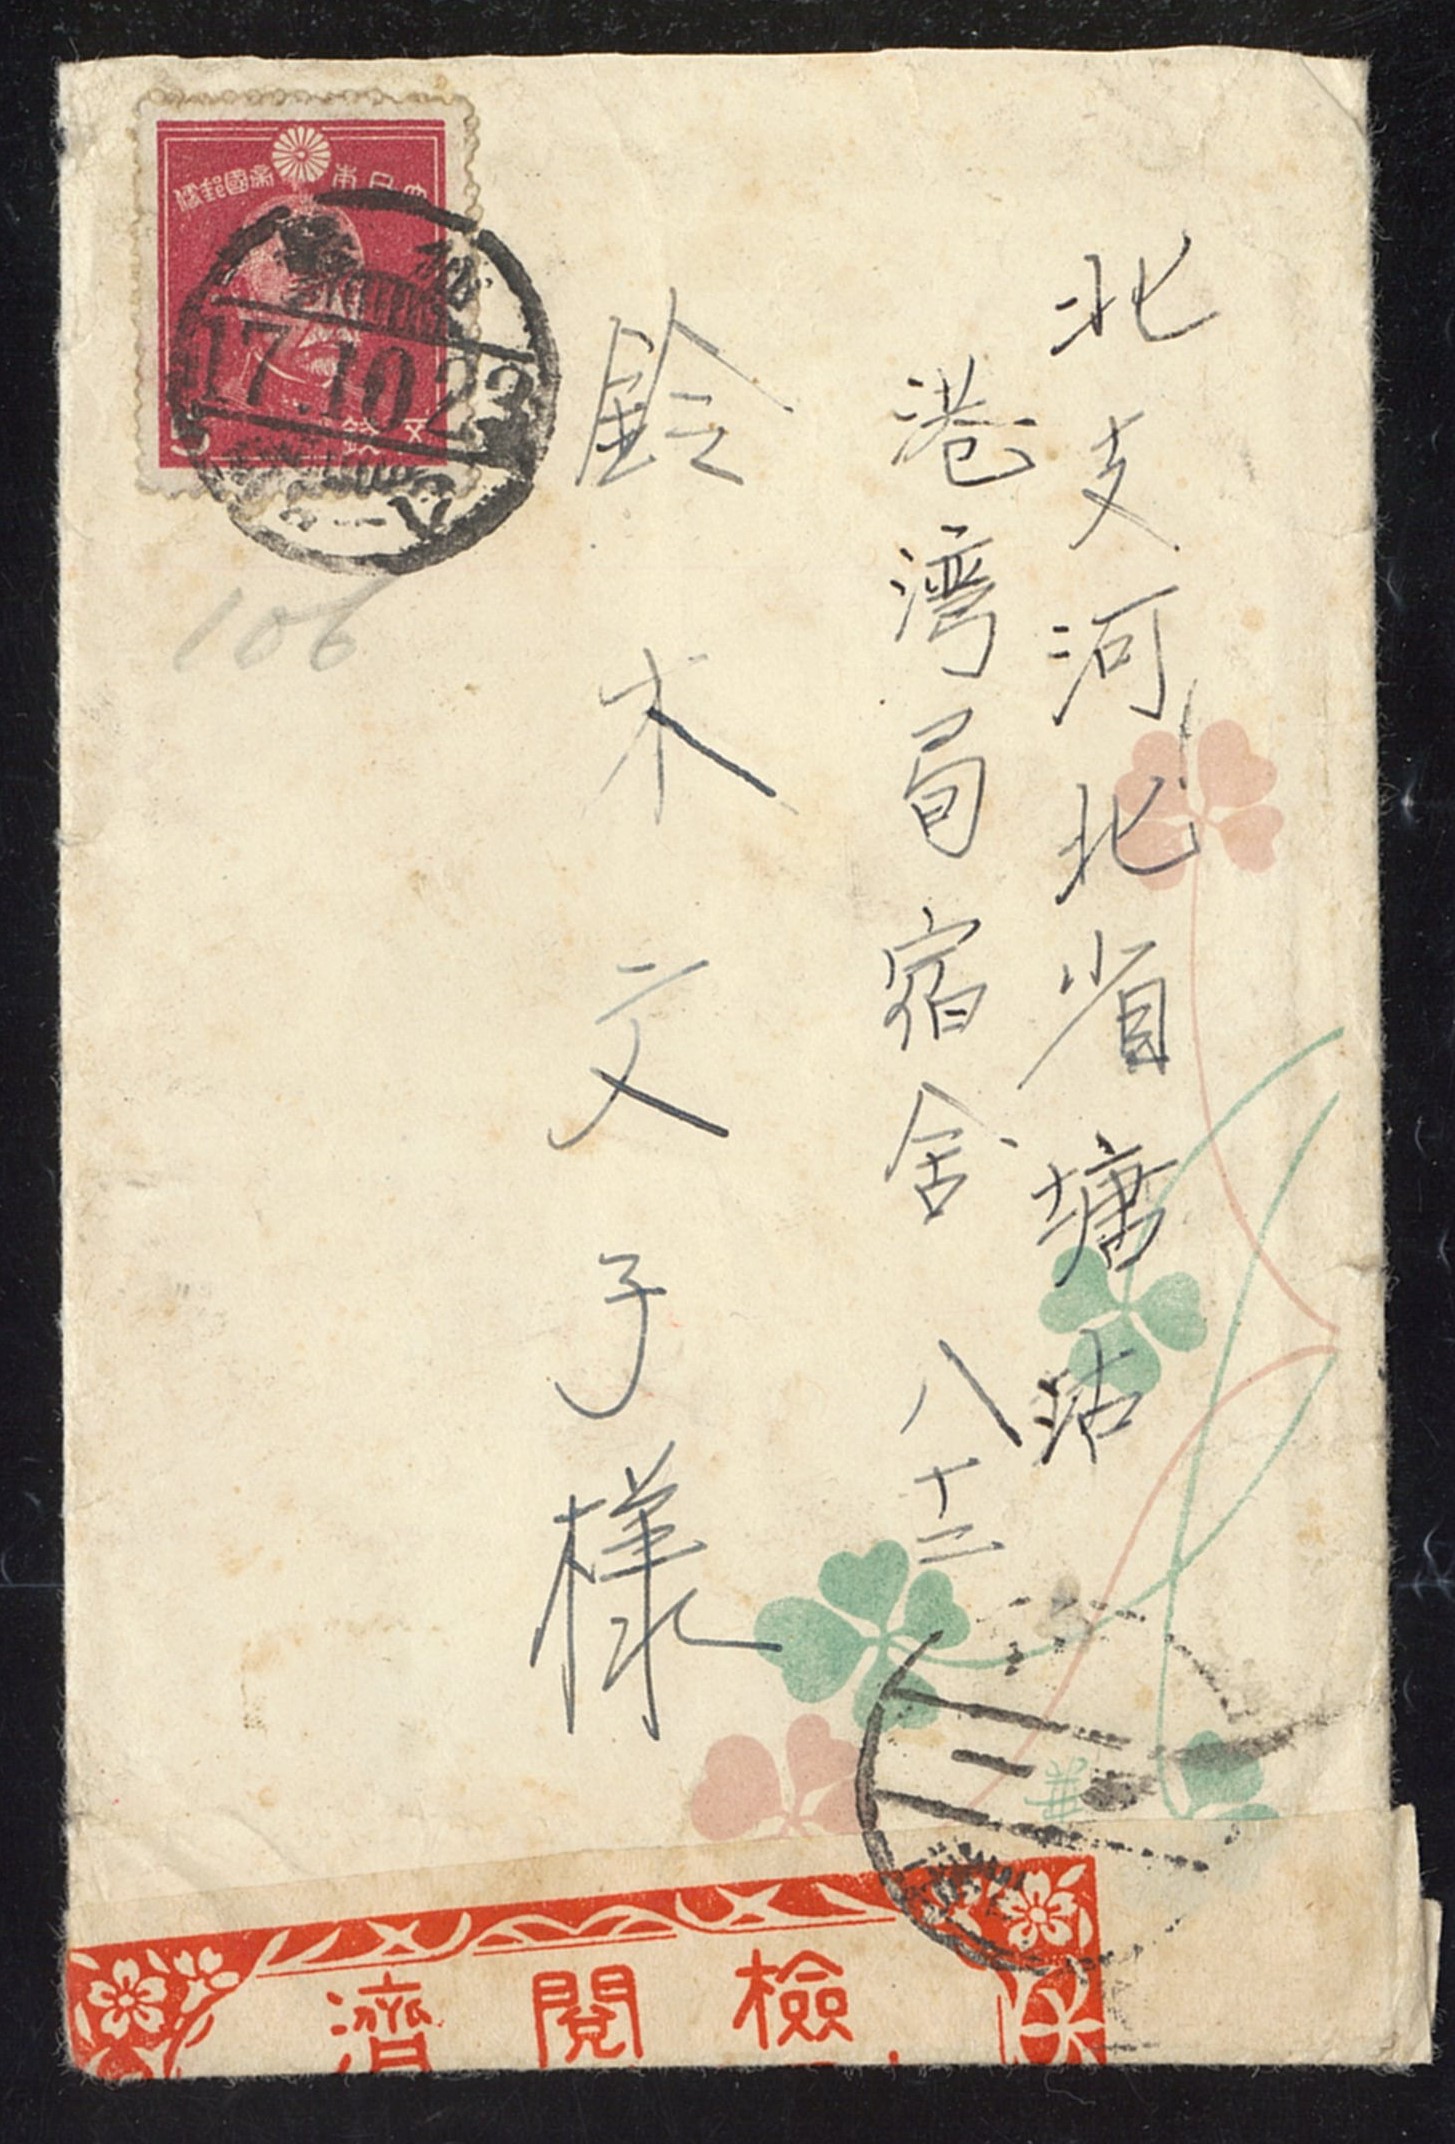 北支河北省塘沽
港湾局宿舎 八十二
鈴木文子様
大日本帝國郵便
17.10.23
106
華
檢閱濟